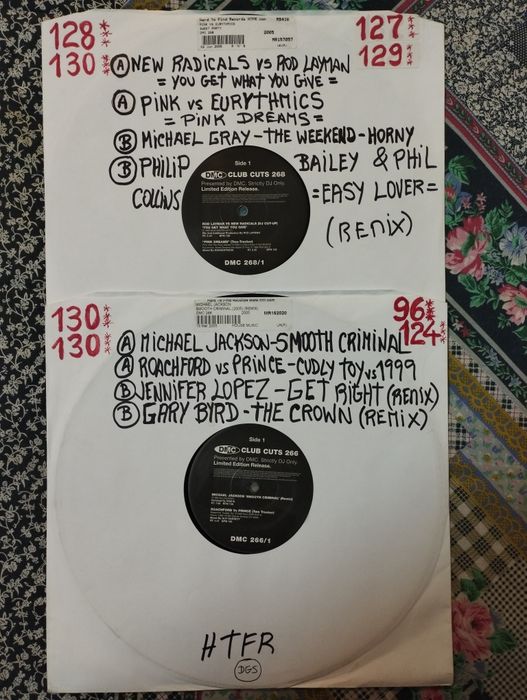 128**
130**
127**
129**
Hard To Find Records HTFR.com
PINK VS EURYTHMICS
SWEET PARTY
DMC 268
2005
Ⓐ NEW RADICALS vs ROD LAYMAN
= YOU GET WHAT YOU GIVE =
Ⓐ PINK vs EURYTHMICS
= PINK DREAMS =
Ⓑ MICHAEL GRAY - THE WEEKEND - HORNY
Ⓑ PHILIP BAILEY & PHIL
COLLINS = EASY LOVER =
(REMIX)
Side 1
DMC CLUB CUTS 268
Presented by DMC. Strictly DJ Only.
Limited Edition Release.
ROD LAYMAN VS NEW RADICALS (DJ CUT-UP)
'YOU GET WHAT YOU GIVE'
'PINK DREAMS' (Two Tracker)
DMC 268/1
130**
130**
96**
124**
MICHAEL JACKSON
SMOOTH CRIMINAL (2005) (REMIX)
DMC 266
2005
HOUSE MUSIC
Ⓐ MICHAEL JACKSON - SMOOTH CRIMINAL
Ⓐ ROACHFORD vs PRINCE - CUDLY TOY vs 1999
Ⓑ JENNIFER LOPEZ - GET RIGHT (REMIX)
Ⓑ GARY BYRD - THE CROWN (REMIX)
Side 1
DMC CLUB CUTS 266
Presented by DMC. Strictly DJ Only.
Limited Edition Release.
MICHAEL JACKSON 'SMOOTH CRIMINAL' (Remix)
ROACHFORD Vs PRINCE (Two Tracker)
DMC 266/1
HTFR
DGS